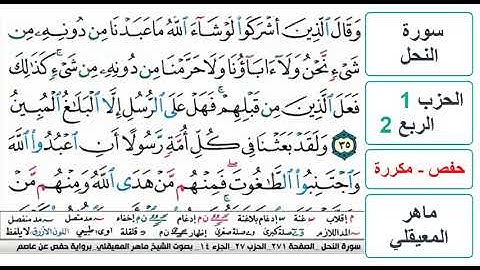 وَقَالَ ٱلَّذِينَ أَشْرَكُوا۟ لَوْ شَآءَ ٱللَّهُ مَا عَبَدْنَا مِن دُونِهِۦ مِن
شَىْءٍ نَّحْنُ وَلَآ ءَابَآؤُنَا وَلَا حَرَّمْنَا مِن دُونِهِۦ مِن شَىْءٍ ۚ كَذَٰلِكَ
فَعَلَ ٱلَّذِينَ مِن قَبْلِهِمْ ۚ فَهَلْ عَلَى ٱلرُّسُلِ إِلَّا ٱلْبَلَٰغُ ٱلْمُبِينُ
٣٥ وَلَقَدْ بَعَثْنَا فِى كُلِّ أُمَّةٍ رَّسُولًا أَنِ ٱعْبُدُوا۟ ٱللَّهَ
وَٱجْتَنِبُوا۟ ٱلطَّٰغُوتَ ۖ فَمِنْهُم مَّنْ هَدَى ٱللَّهُ وَمِنْهُم مَّنْ
سورة
النحل
الحزب 1
الربع 2
حفص - مكررة
ماهر
المعيقلي
سورة النحل _ الصفحة ٢٧١ _ الحزب ٢٧ _ الجزء ١٤ _ بصوت الشيخ ماهر المعيقلي _ برواية حفص عن عاصم